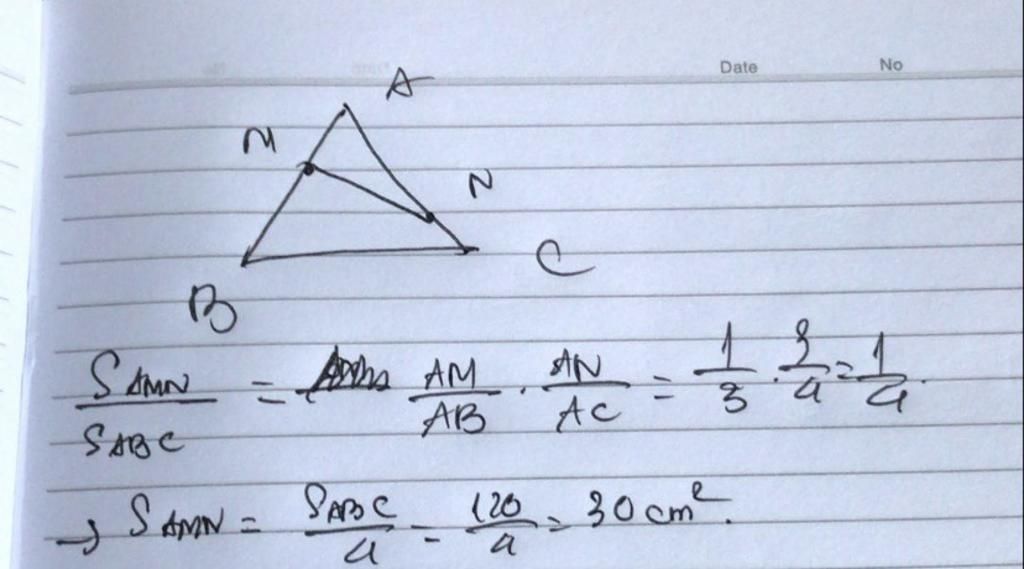 Date No
A
M
N
C
B
S AMN / S ABC = AM/AB . AN/AC = 1/3 . 3/4 = 1/4.
→ S AMN = S ABC/4 = 120/4 = 30 cm².